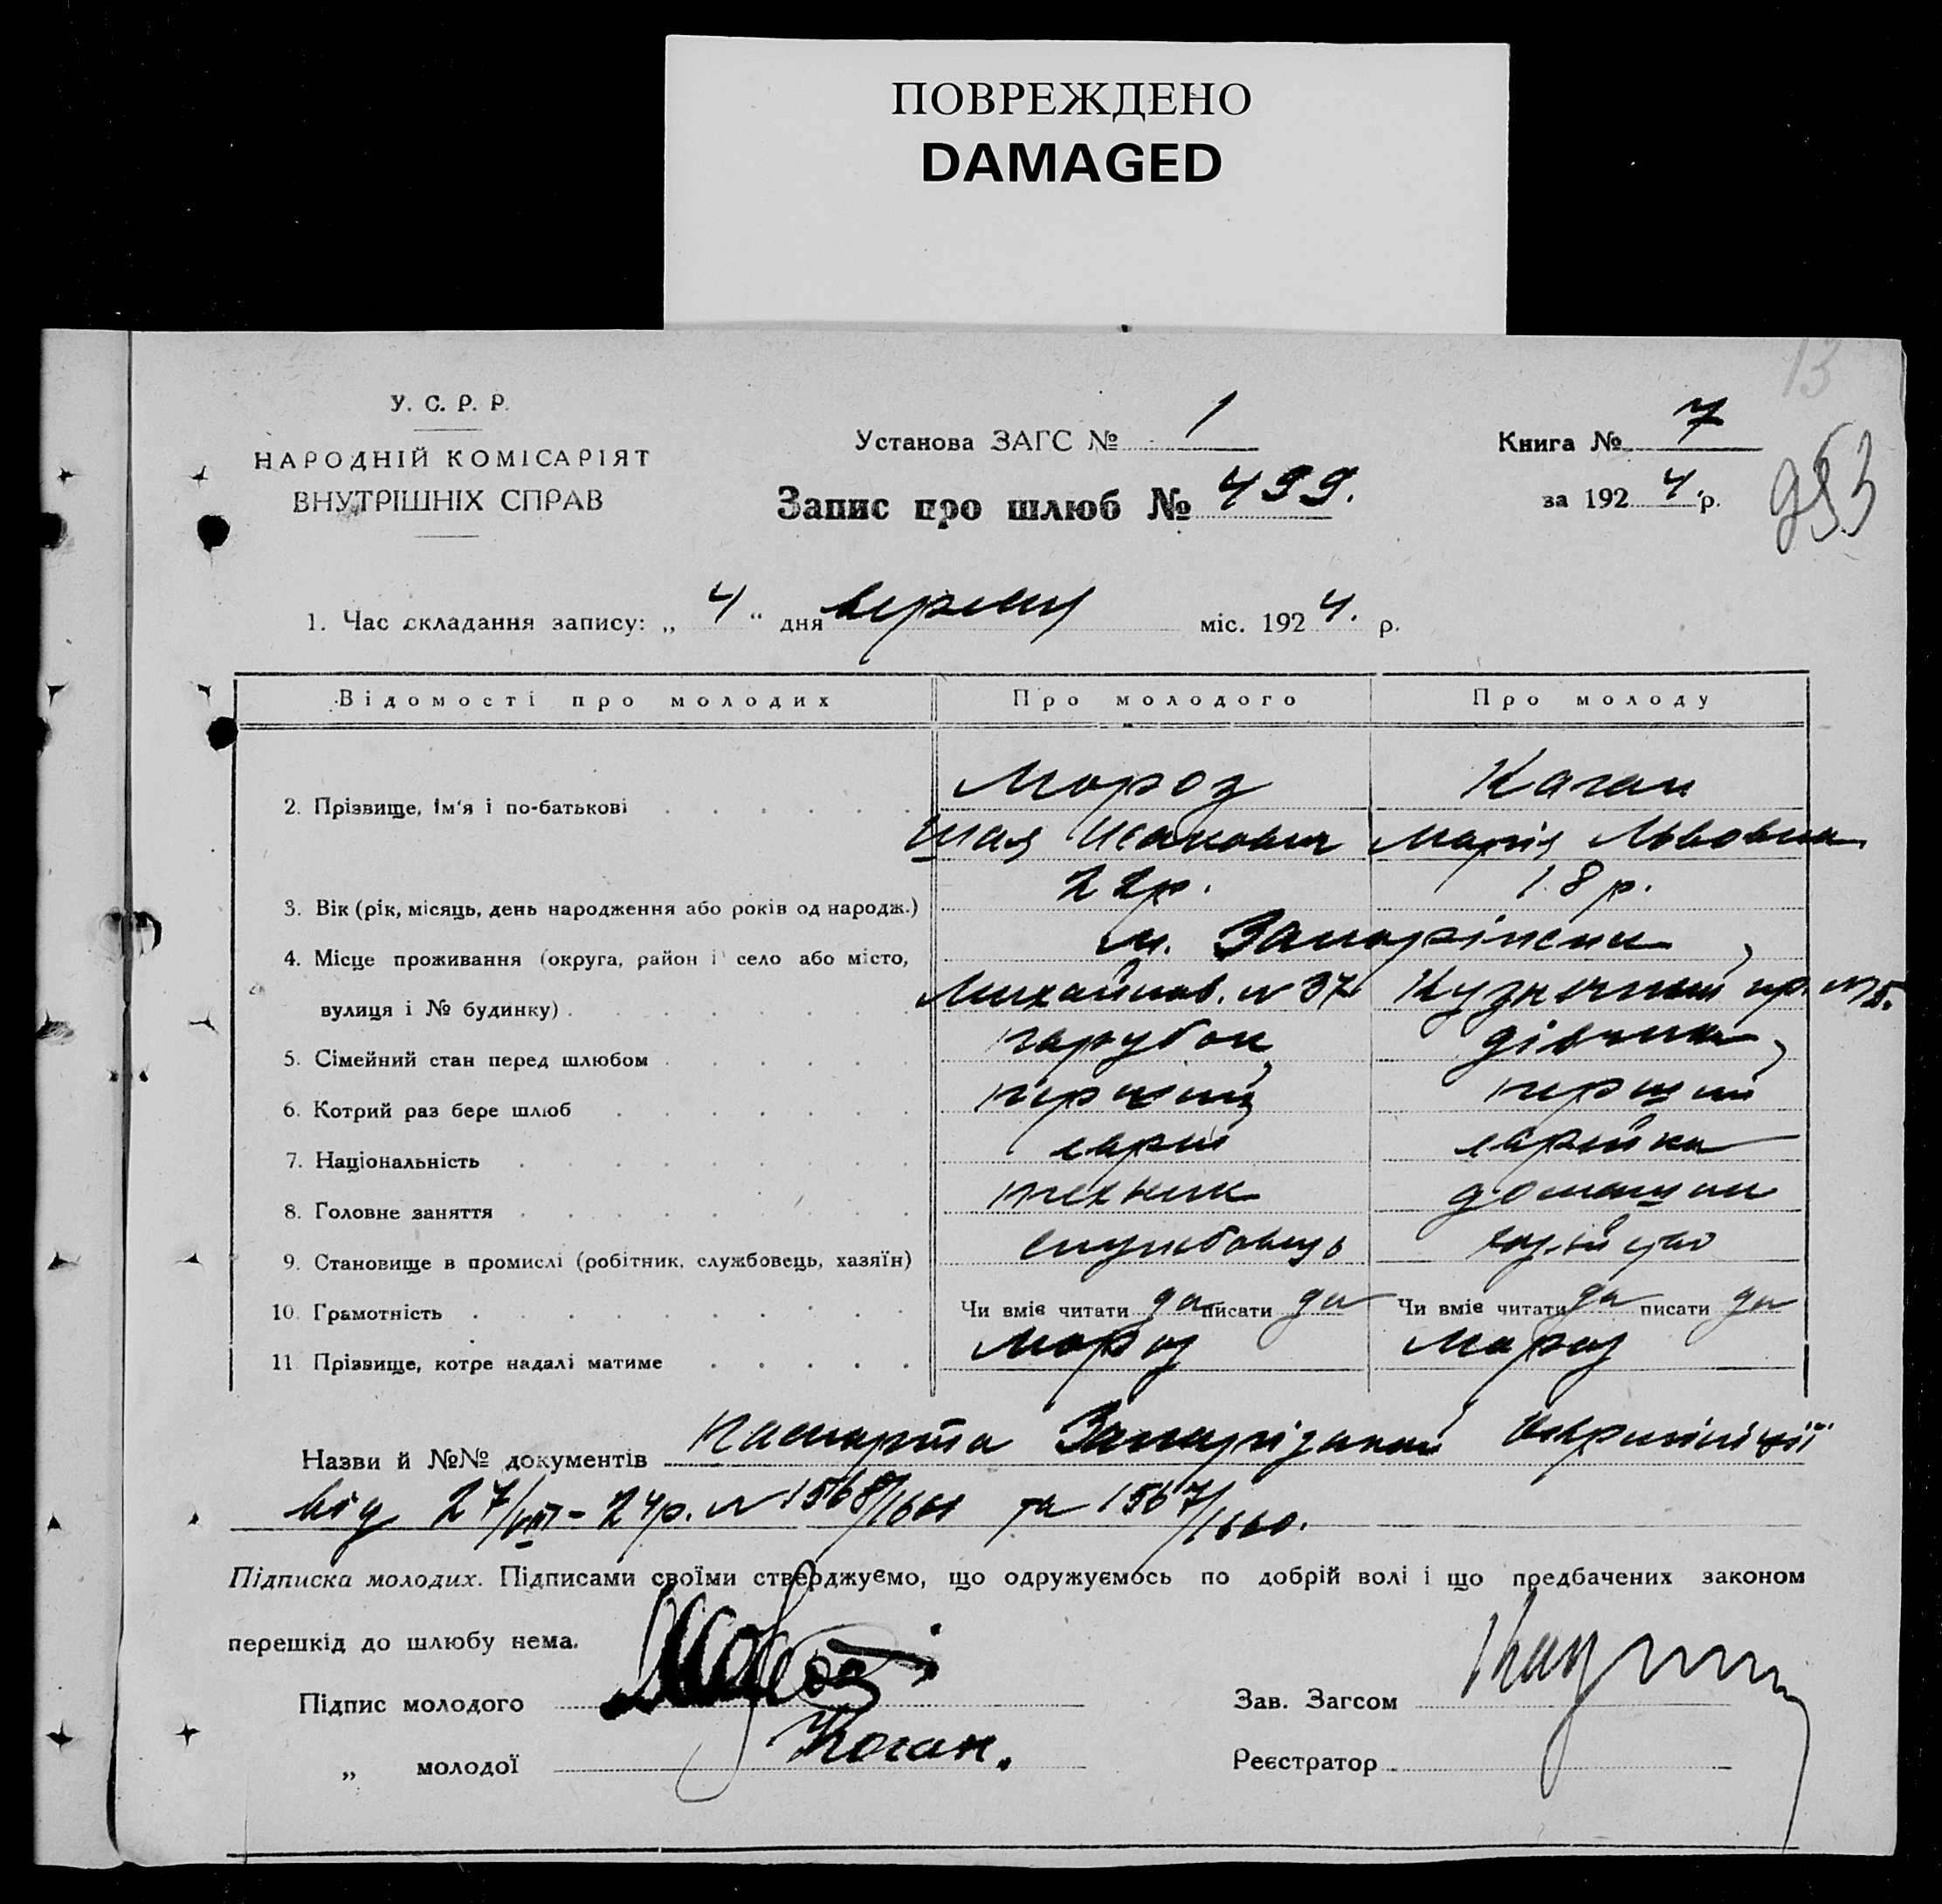 ПОВРЕЖДЕНО
DAMAGED
13
У. С. Р. Р.
НАРОДНІЙ КОМІСАРІЯТ
ВНУТРІШНІХ СПРАВ
Установа ЗАГС № 1
Запис про шлюб № 499.
Книга № 7
за 1924 р.
953
1. Час складання запису: „ 4 “ дня вересня міс. 1924. р.
Відомості про молодих Про молодого Про молоду
2. Прізвище, ім'я і по-батькові Мороз Каган
Шая Исакович Марія Львовна
3. Вік (рік, місяць, день народження або років од народж.) 22р. 18р.
4. Місце проживання (округа, район і село або місто, м.
вулиця і № будинку) Михайлов. № 37 Кузнечный пр.
5. Сімейний стан перед шлюбом парубок, дівчина,
6. Котрий раз бере шлюб перший перший
7. Національність еврей еврейка
8. Головне заняття техник домашнє
9. Становище в промислі (робітник, службовець, хазяїн) службовець
10. Грамотність Чи вміє читати да писати да Чи вміє читати да писати да
11. Прізвище, котре надалі матиме Мороз Мороз
Назви й №№ документів
від 27/VIII-24р. № 1568/1661 та 1567/1660.
Підписка молодих. Підписами своїми стверджуємо, що одружуємось по добрій волі і що предбачених законом
перешкід до шлюбу нема.
Підпис молодого Мороз Зав. Загсом
„ молодої Коган. Реєстратор